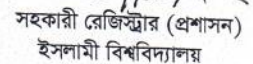 সহকারী রেজিস্ট্রার (প্রশাসন)
ইসলামী বিশ্ববিদ্যালয়